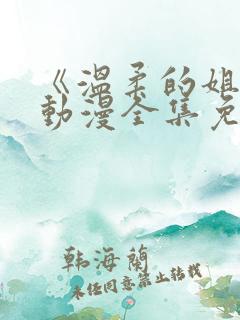 《温柔的姐
动漫全集免
韩海兰
未经同意禁止转载